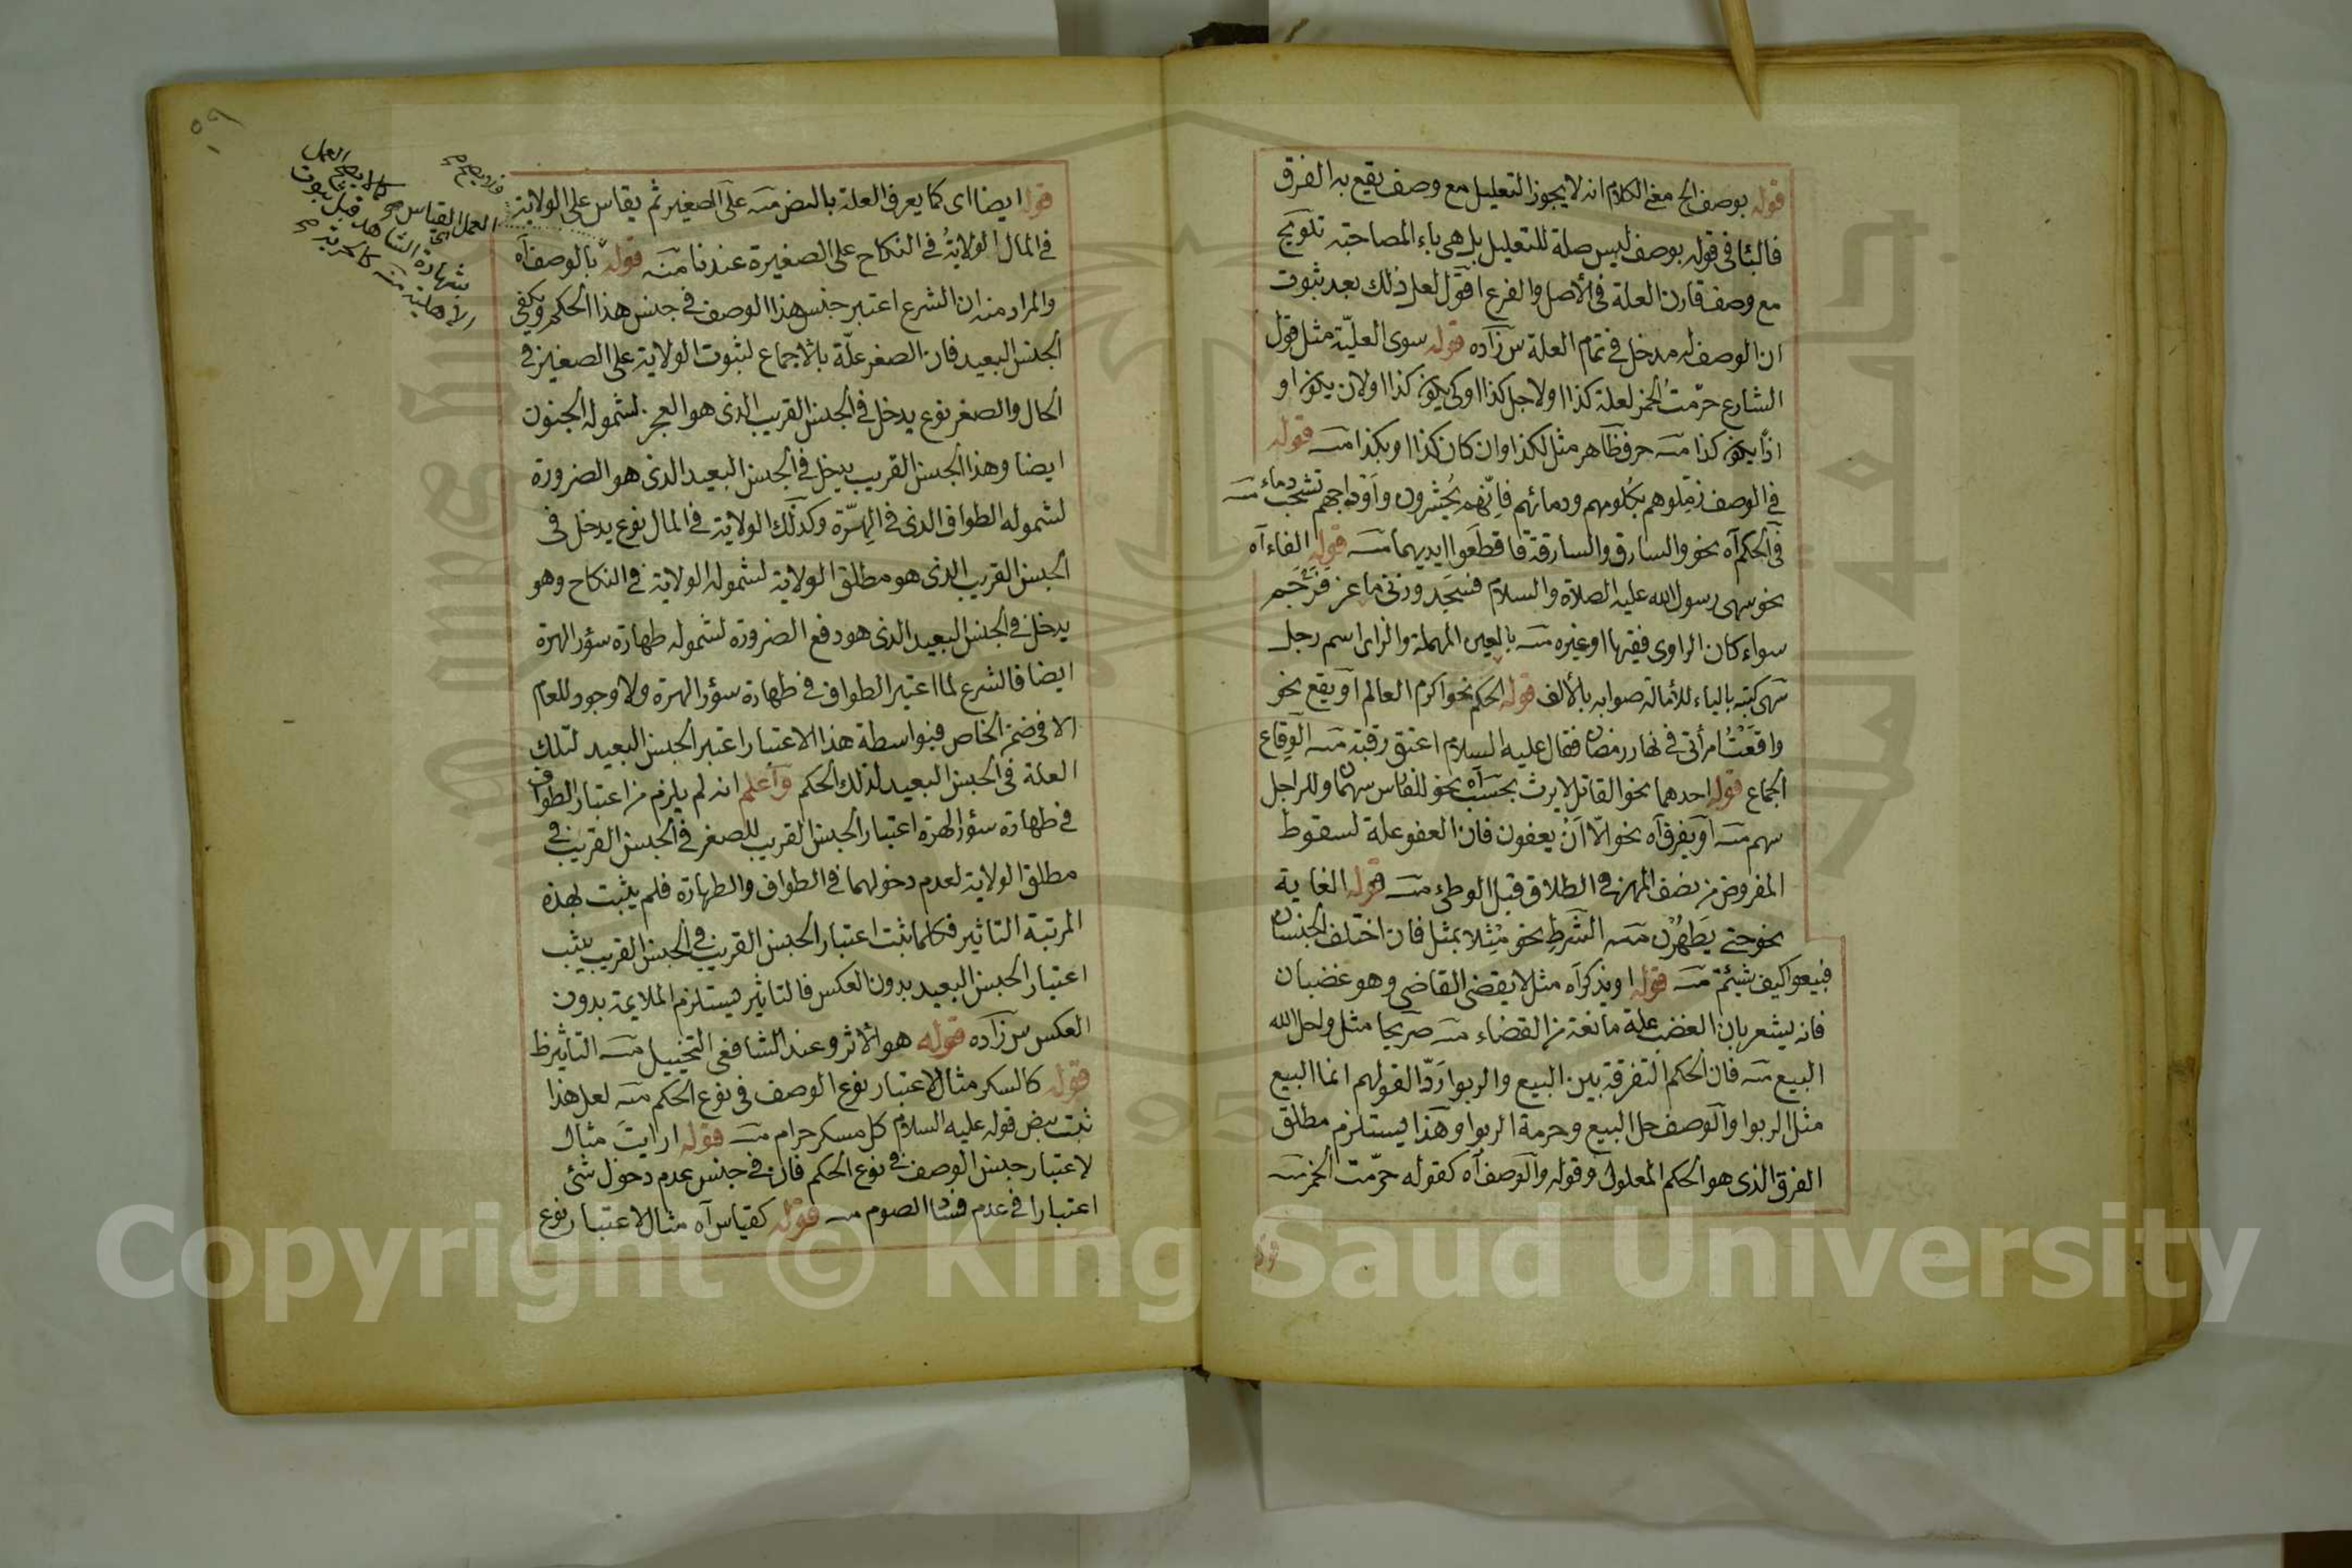 قوله بوصف الخ معنى الكلام انه لا يجوز التعليل مع وصف يقع به الفرق
فالبأ فى قوله بوصف ليس صلة للتعليل بل هى باء المصاحبة تلويح
مع وصف قارن العلة فى الأصل والفرع اقول لعل ذلك بعد ثبوت
ان الوصف له مدخل فى تمام العلة س زاده قوله سوى العلّية مثل قول
الشارع حرّمتُ الخمر لعلة كذا او لاجل كذا او كى يكون كذا او لان يكون او
اذًا يكون كذا منه حرف ظاهر مثل لكذا وان كان كذا او بكذا منه قوله
فى الوصف زمّلوهم بكلومهم ودمائهم فانّهم يُحشرون واَوْداجهم تشخب دماء منه
فى الحكم آه نحو والسارق والسارقة فاقطعوا ايديهما منه قوله الفاء آه
نحو سهى رسول الله عليه الصلاة والسلام فسَجَد وزنى ماعز فرُجم
سواء كان الراوى فقيها او غيره منه بالعين المهملة والزاى اسم رجل
سهى كتبه بالياء للأمالة صوابه بالألف قوله الحكم نحو اكرم العالم او يقع نحو
واقعْتُ امرأتى فى نهار رمضان فقال عليه السلام اعتق رقبة منه الوقاع
الجماع قوله احدهما نحو القاتل لا يرث بحسب آه نحو للفارس سهمان وللراجل
سهم منه او يفرق آه نحو الّا اَنْ يعفون فان العفو علة لسقوط
المفروض من نصف المهر فى الطلاق قبل الوطئ منه قوله الغاية
نحو حتى يَطهُرْن منه الشرط نحو مِثلا بمثل فان اختلف الجنسان
فبيعوا كيف شئتم منه قوله او يذكر آه مثل لا يقضى القاضى وهو غضبان
فانه يشعر بان الغضب علة مانعة من القضاء منه صريحا مثل واحل الله
البيع منه فان الحكم التفرقة بين البيع والربوا رَدّا لقولهم انما البيع
مثل الربوا والوصف حل البيع وحرمة الربوا وهذا يستلزم مطلق
الفرق الذى هو الحكم المعلول وقوله والوصف آه كقوله حرّمت الخمر منه
قوله
٥٩
قوله ايضا اى كما يعرف العلة بالنص منه على الصغير ثم يقاس على الولاية
فى المال الولايةُ فى النكاح على الصغيرة عندنا منه قوله بالوصف آه
والمراد منه ان الشرع اعتبر جنس هذا الوصف فى جنس هذا الحكم ويكفى
الجنس البعيد فان الصغر علّة بالاجماع لثبوت الولاية على الصغير فى
المال والصغر نوع يدخل فى الجنس القريب الذى هو العجز لشموله الجنون
ايضا وهذا الجنس القريب يدخل فى الجنس البعيد الذى هو الضرورة
لشموله الطواف الذى فى الهِرّة وكذلك الولاية فى المال نوع يدخل فى
الجنس القريب الذى هو مطلق الولاية لشموله الولاية فى النكاح وهو
يدخل فى الجنس البعيد الذى هو دفع الضرورة لشموله طهارة سؤر الهرة
ايضا فالشرع لما اعتبر الطواف فى طهارة سؤر الهرة ولا وجود للعام
الا فى ضمن الخاص فبواسطة هذا الاعتبار اعتبر الجنس البعيد لتلك
العلة فى الجنس البعيد لذلك الحكم واعلم انه لم يلزم من اعتبار الطواف
فى طهارة سؤر الهرة اعتبار الجنس القريب للصغر فى الجنس القريب فى
مطلق الولاية لعدم دخولهما فى الطواف والطهارة فلم يثبت بهذه
المرتبة التاثير فكلما ثبت اعتبار الجنس القريب فى الجنس القريب يثبت
اعتبار الجنس البعيد بدون العكس فالتاثير يستلزم الملايمة بدون
العكس س زاده قوله هو الأثر وعند الشافعى التخييل منه التاثير ظ
قوله كالسكر مثال لاعتبار نوع الوصف فى نوع الحكم منه لعل هذا
ثبت بنص قوله عليه السلام كل مسكر حرام منه قوله ارايت مثال
لاعتبار جنس الوصف فى نوع الحكم فان فى جنس عدم دخول شئ
اعتبارا فى عدم فساد الصوم منه قوله كقياس آه مثال لاعتبار نوع
كما لا يصح العمل
العمل القياس
بشهادة الشاهد قبل ثبوت
الأهلية منه كالحرية
Copyright © King Saud University